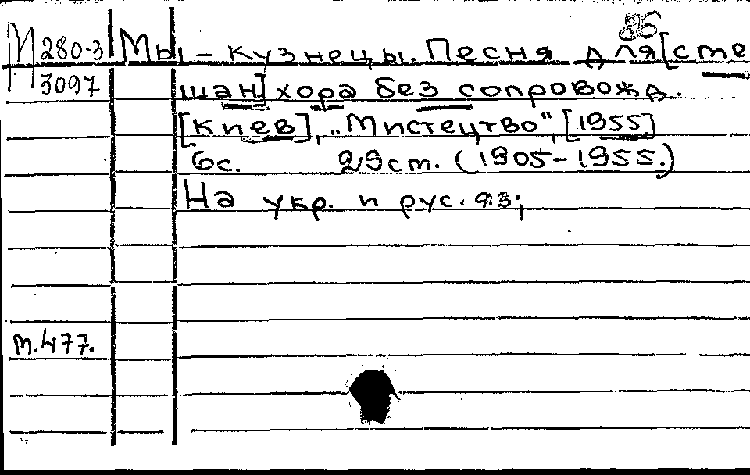 86
М 280-3 Мы - кузнецы. Песня для [сме
3097 шан] хора без сопровожд.
[Киев], „Мистецтво", [1955]
6с. 29см. (1905-1955.)
На укр. и рус. яз;
м.477.